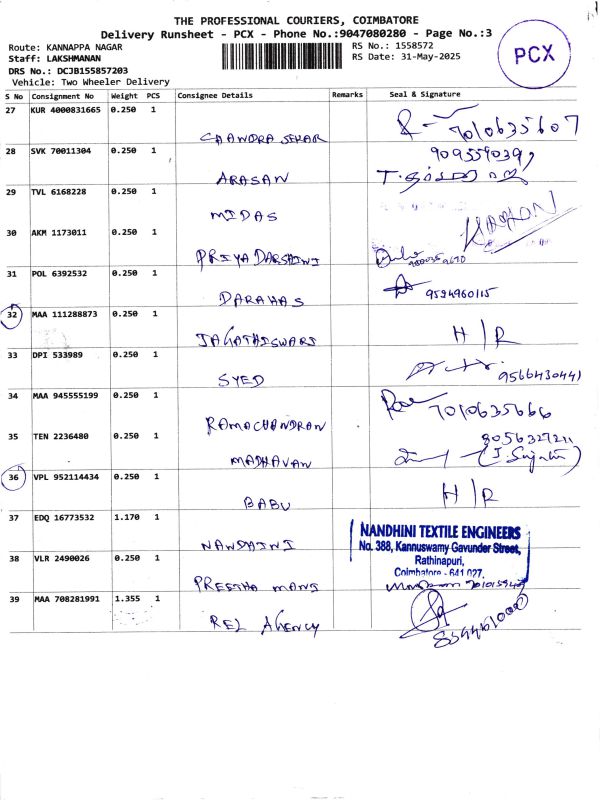 THE PROFESSIONAL COURIERS, COIMBATORE
Delivery Runsheet - PCX - Phone No.:9047080280 - Page No.:3
Route: KANNAPPA NAGAR
Staff: LAKSHMANAN
DRS No.: DCJB155857203
Vehicle: Two Wheeler Delivery
RS No.: 1558572
RS Date: 31-May-2025
PCX
S No Consignment No Weight PCS Consignee Details Remarks Seal & Signature
27 KUR 4000831665 0.250 1
CHANDRA SEKAR 7010635607
28 SVK 70011304 0.250 1
ARASAN
29 TVL 6168228 0.250 1
MIDAS
30 AKM 1173011 0.250 1
PRIYA DARSHINI
31 POL 6392532 0.250 1
DARAHAS 9594960115
32 MAA 111288873 0.250 1
JAGATHISWARI H/R
33 DPI 533989 0.250 1
SYED 9566430441
34 MAA 945555199 0.250 1
RAMACHANDRAN 7010635666
35 TEN 2236480 0.250 1
MADHAVAN
36 VPL 952114434 0.250 1
BABU H/R
37 EDQ 16773532 1.170 1
NANDHINI
NANDHINI TEXTILE ENGINEERS
No. 388, Kannuswamy Gavunder Street,
Rathinapuri,
Coimbatore - 641 027.
38 VLR 2490026 0.250 1
PREETHA MANI
39 MAA 708281991 1.355 1
REL AGENCY